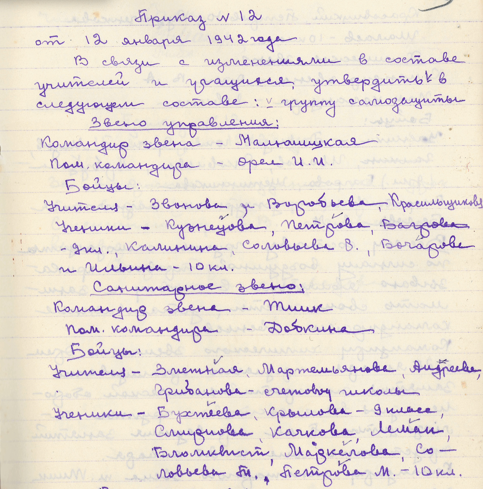 Приказ № 12
от 12 января 1942 года
В связи с изменениями в составе
учителей и учащихся, утвердить в
следующем составе: группу самозащиты
Звено управления:
Командир звена –
Пом. командира – Орел И. И.
Бойцы:
Учителя – Звонова и Воробьева, Красильщикова
Ученики – Кузнецова, Петрова,
– 9 кл., Калинина, Соловьева В.,
и Ильина – 10 кл.
Санитарное звено:
Командир звена –
Пом. командира – Добкина
Бойцы:
Учителя – Злетная, Мартемьянова, Андреева,
Грибанова – счетовод школы
Ученики – Бухтеева, Крылова – 9 класс,
Смирнова, Качкова, Леман,
Бломквист, Маркелова, Со-
ловьева Т., Петрова М. – 10 кл.